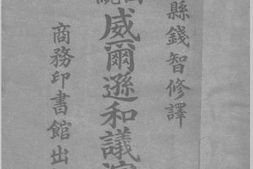 縣錢智修譯
統威爾遜和議演
商務印書館出